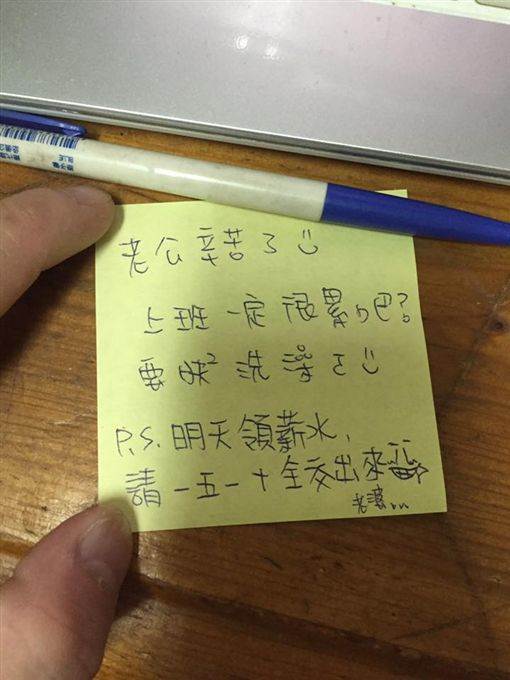 老公辛苦了
上班一定很累吧?
要快洗澡
P.S. 明天領薪水,
請一五一十全交出來
老婆...